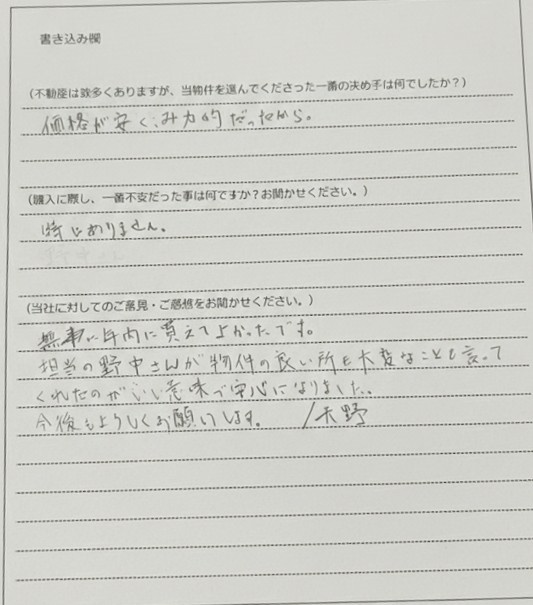 書き込み欄
(不動産は数多くありますが、当物件を選んでくださった一番の決め手は何でしたか?)
価格が安く、みカ的だったから。
(購入に際し、一番不安だった事は何ですか?お聞かせください。)
特にありません。
(当社に対してのご意見・ご感想をお聞かせください。)
無事に年内に買えてよかったです。
担当の野中さんが物件の良い所も大変なことも言って
くれたのがいい意味で安心になりました。
今後もよろしくお願いします。 /天野